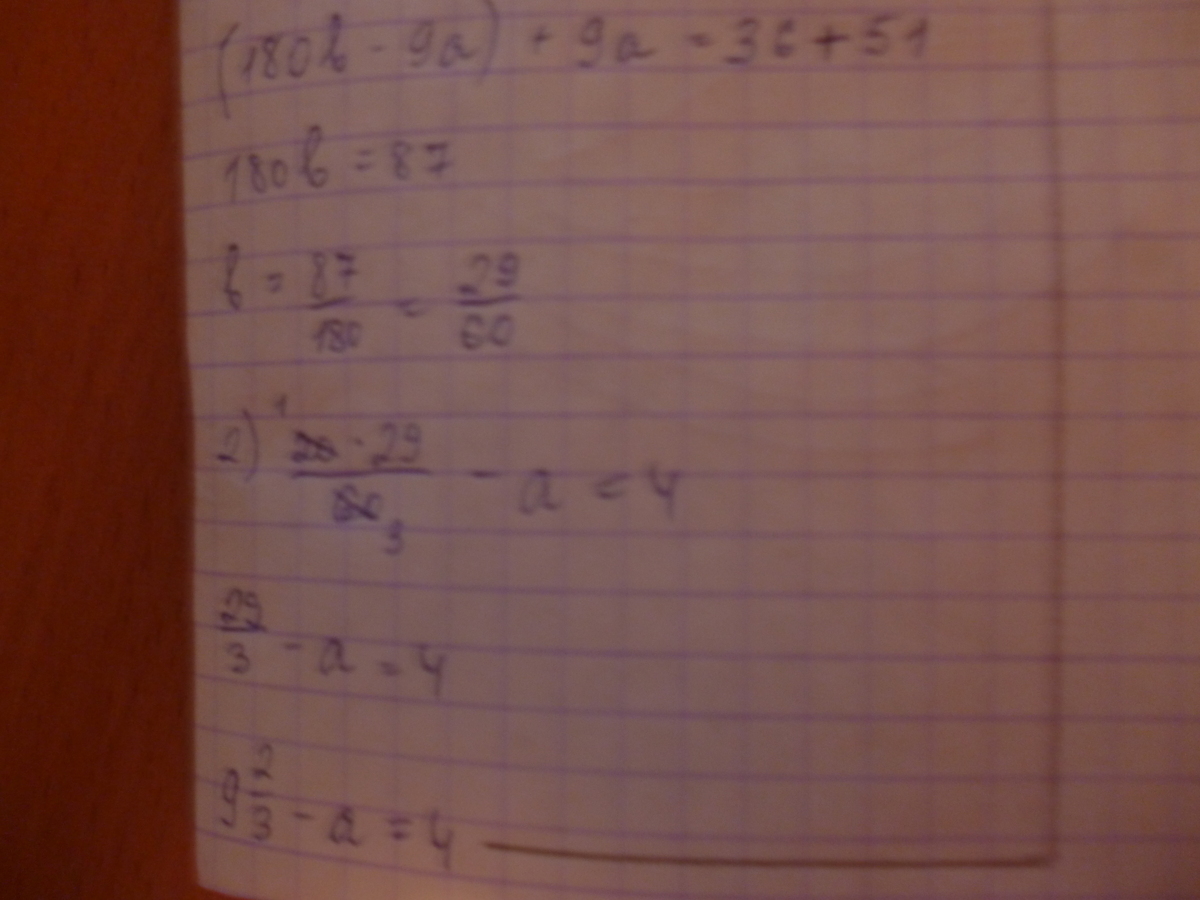 (180b - 9a) + 9a = 36 + 51
180b = 87
b = 87/180 = 29/60
2) 1 20 · 29 / 60 3 - a = 4
29/3 - a = 4
9 2/3 - a = 4